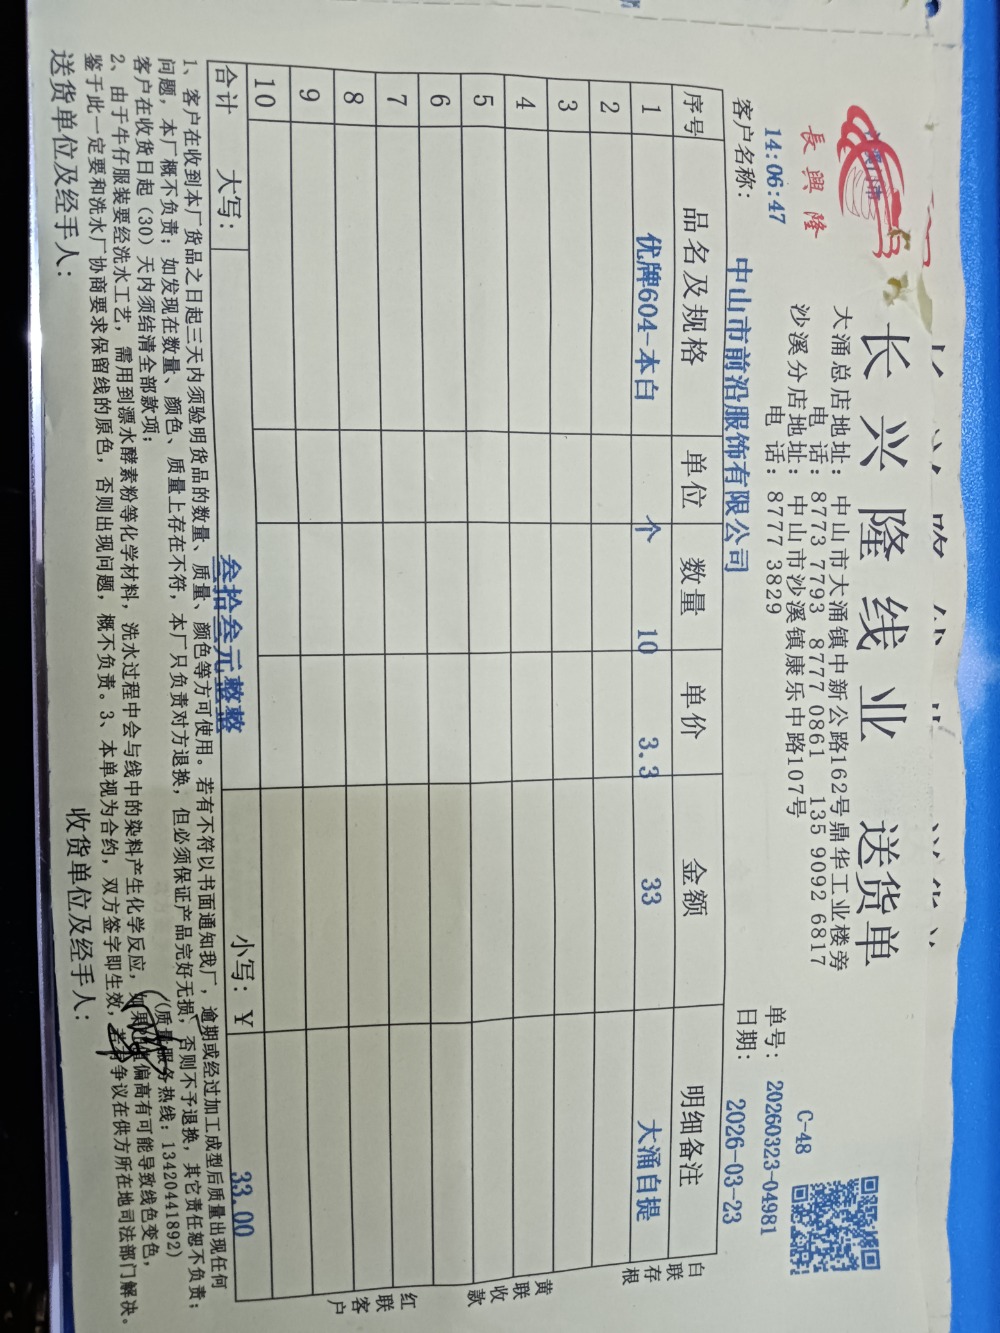 长兴隆线业 送货单
長興隆
大涌总店地址: 中山市大涌镇中新公路162号鼎华工业楼旁
电 话: 8773 7793 8777 0861 135 9092 6817
沙溪分店地址: 中山市沙溪镇康乐中路107号
电 话: 8777 3829
C-48
14:06:47
单号: 20260323-04981
客户名称: 中山市前沿服饰有限公司
日期: 2026-03-23
序号 品名及规格 单位 数量 单价 金额 明细备注
1 优牌604-本白 个 10 3.3 33 大涌自提
2
3
4
5
6
7
8
9
10
合计 大写: 叁拾叁元整整 小写: ¥ 33.00
白联存根
黄联收款
红联客户
1、客户在收到本厂货品之日起三天内须验明货品的数量、质量、颜色等方可使用。若有不符以书面通知我厂, 逾期或经过加工成型后质量出现任何
问题, 本厂概不负责; 如发现在数量、颜色、质量上存在不符, 本厂只负责对方退换, 但必须保证产品完好无损, 否则不予退换, 其它责任恕不负责;
客户在收货日起 (30) 天内须结清全部款项; (质量服务热线: 13420441892)
2、由于牛仔服装要经洗水工艺, 需用到漂水酵素粉等化学材料, 洗水过程中会与线中的染料产生化学反应, 如果 偏高有可能导致线色变色,
鉴于此一定要和洗水厂协商要求保留线的原色, 否则出现问题, 概不负责。3、本单视为合约, 双方签字即生效, 若有争议在供方所在地司法部门解决。
送货单位及经手人: 收货单位及经手人: